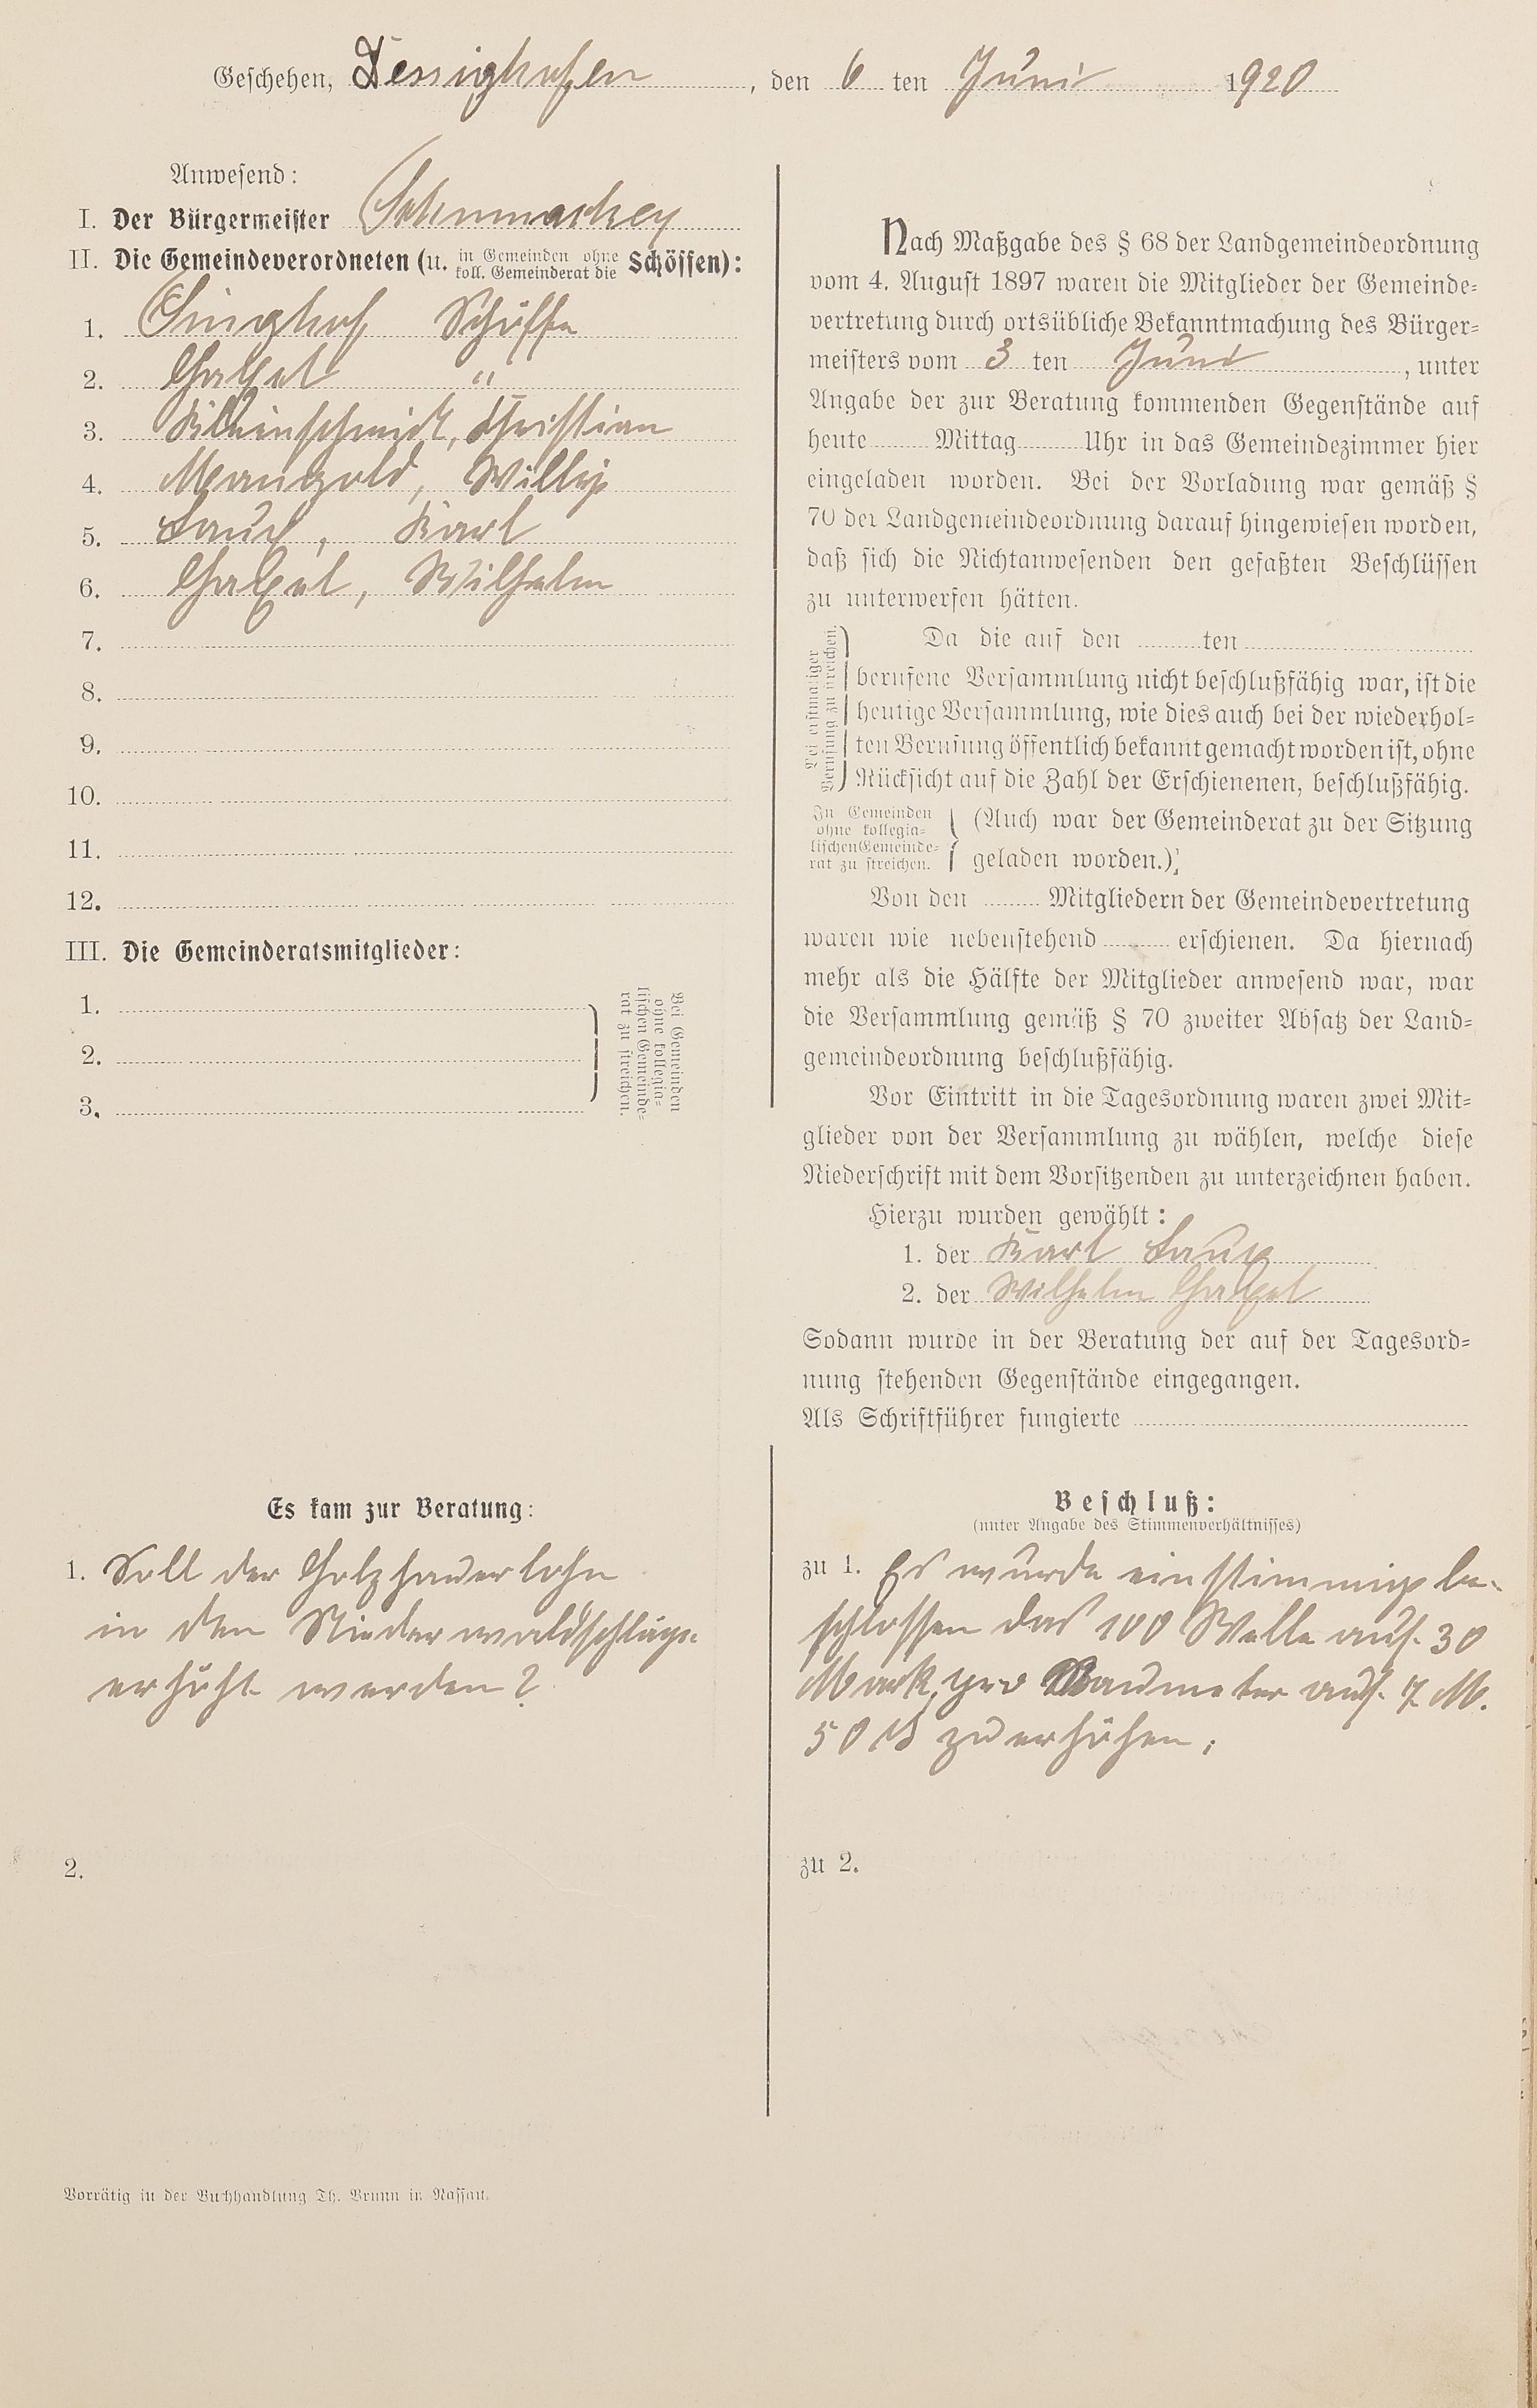 Geschehen, Dessighofen, den 6 ten Juni 1920
Anwesend:
I. Der Bürgermeister Schumacher
II. Die Gemeindeverordneten (u. in Gemeinden ohne koll. Gemeinderat die Schöffen):
1. Singhof Schöffe
2. "
3. Kleinschmidt, Christian
4. Mangold, Willy
5. Karl
6. Wilhelm
7.
8.
9.
10.
11.
12.
III. Die Gemeinderatsmitglieder:
1.
2.
3.
Bei Gemeinden
ohne kollegia-
lischen Gemeinde-
rat zu streichen.
Nach Maßgabe des § 68 der Landgemeindeordnung
vom 4. August 1897 waren die Mitglieder der Gemeinde-
vertretung durch ortsübliche Bekanntmachung des Bürger-
meisters vom 3 ten Juni, unter
Angabe der zur Beratung kommenden Gegenstände auf
heute Mittag Uhr in das Gemeindezimmer hier
eingeladen worden. Bei der Vorladung war gemäß §
70 der Landgemeindeordnung darauf hingewiesen worden,
daß sich die Nichtanwesenden den gefaßten Beschlüssen
zu unterwerfen hätten.
Bei erstmaliger
Berufung zu streichen.
Da die auf den ten
berufene Versammlung nicht beschlußfähig war, ist die
heutige Versammlung, wie dies auch bei der wiederhol-
ten Berufung öffentlich bekannt gemacht worden ist, ohne
Rücksicht auf die Zahl der Erschienenen, beschlußfähig.
In Gemeinden
ohne kollegia-
lischen Gemeinde-
rat zu streichen.
(Auch war der Gemeinderat zu der Sitzung
geladen worden.)
Von den Mitgliedern der Gemeindevertretung
waren wie nebenstehend erschienen. Da hiernach
mehr als die Hälfte der Mitglieder anwesend war, war
die Versammlung gemäß § 70 zweiter Absatz der Land-
gemeindeordnung beschlußfähig.
Vor Eintritt in die Tagesordnung waren zwei Mit-
glieder von der Versammlung zu wählen, welche diese
Niederschrift mit dem Vorsitzenden zu unterzeichnen haben.
Hierzu wurden gewählt:
1. der Karl
2. der Wilhelm
Sodann wurde in der Beratung der auf der Tagesord-
nung stehenden Gegenstände eingegangen.
Als Schriftführer fungierte
Es kam zur Beratung:
1. Soll der Holzhauerlohn
in den Niederwaldschläge
erhöht werden?
2.
Beschluß:
(unter Angabe des Stimmenverhältnisses)
zu 1. Es wurde einstimmig be-
schlossen das 100 Welle auf 30
Mark, pro Raumeter auf 7 M.
50 zu erhöhen.
zu 2.
Vorrätig in der Buchhandlung Th. Brunn in Nassau.